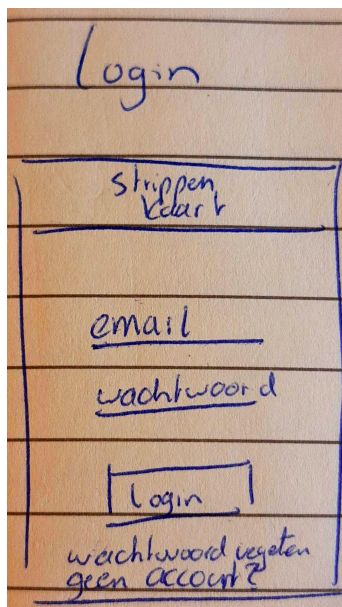 Login
strippen
kaart
email
wachtwoord
login
wachtwoord vegeten
geen account?